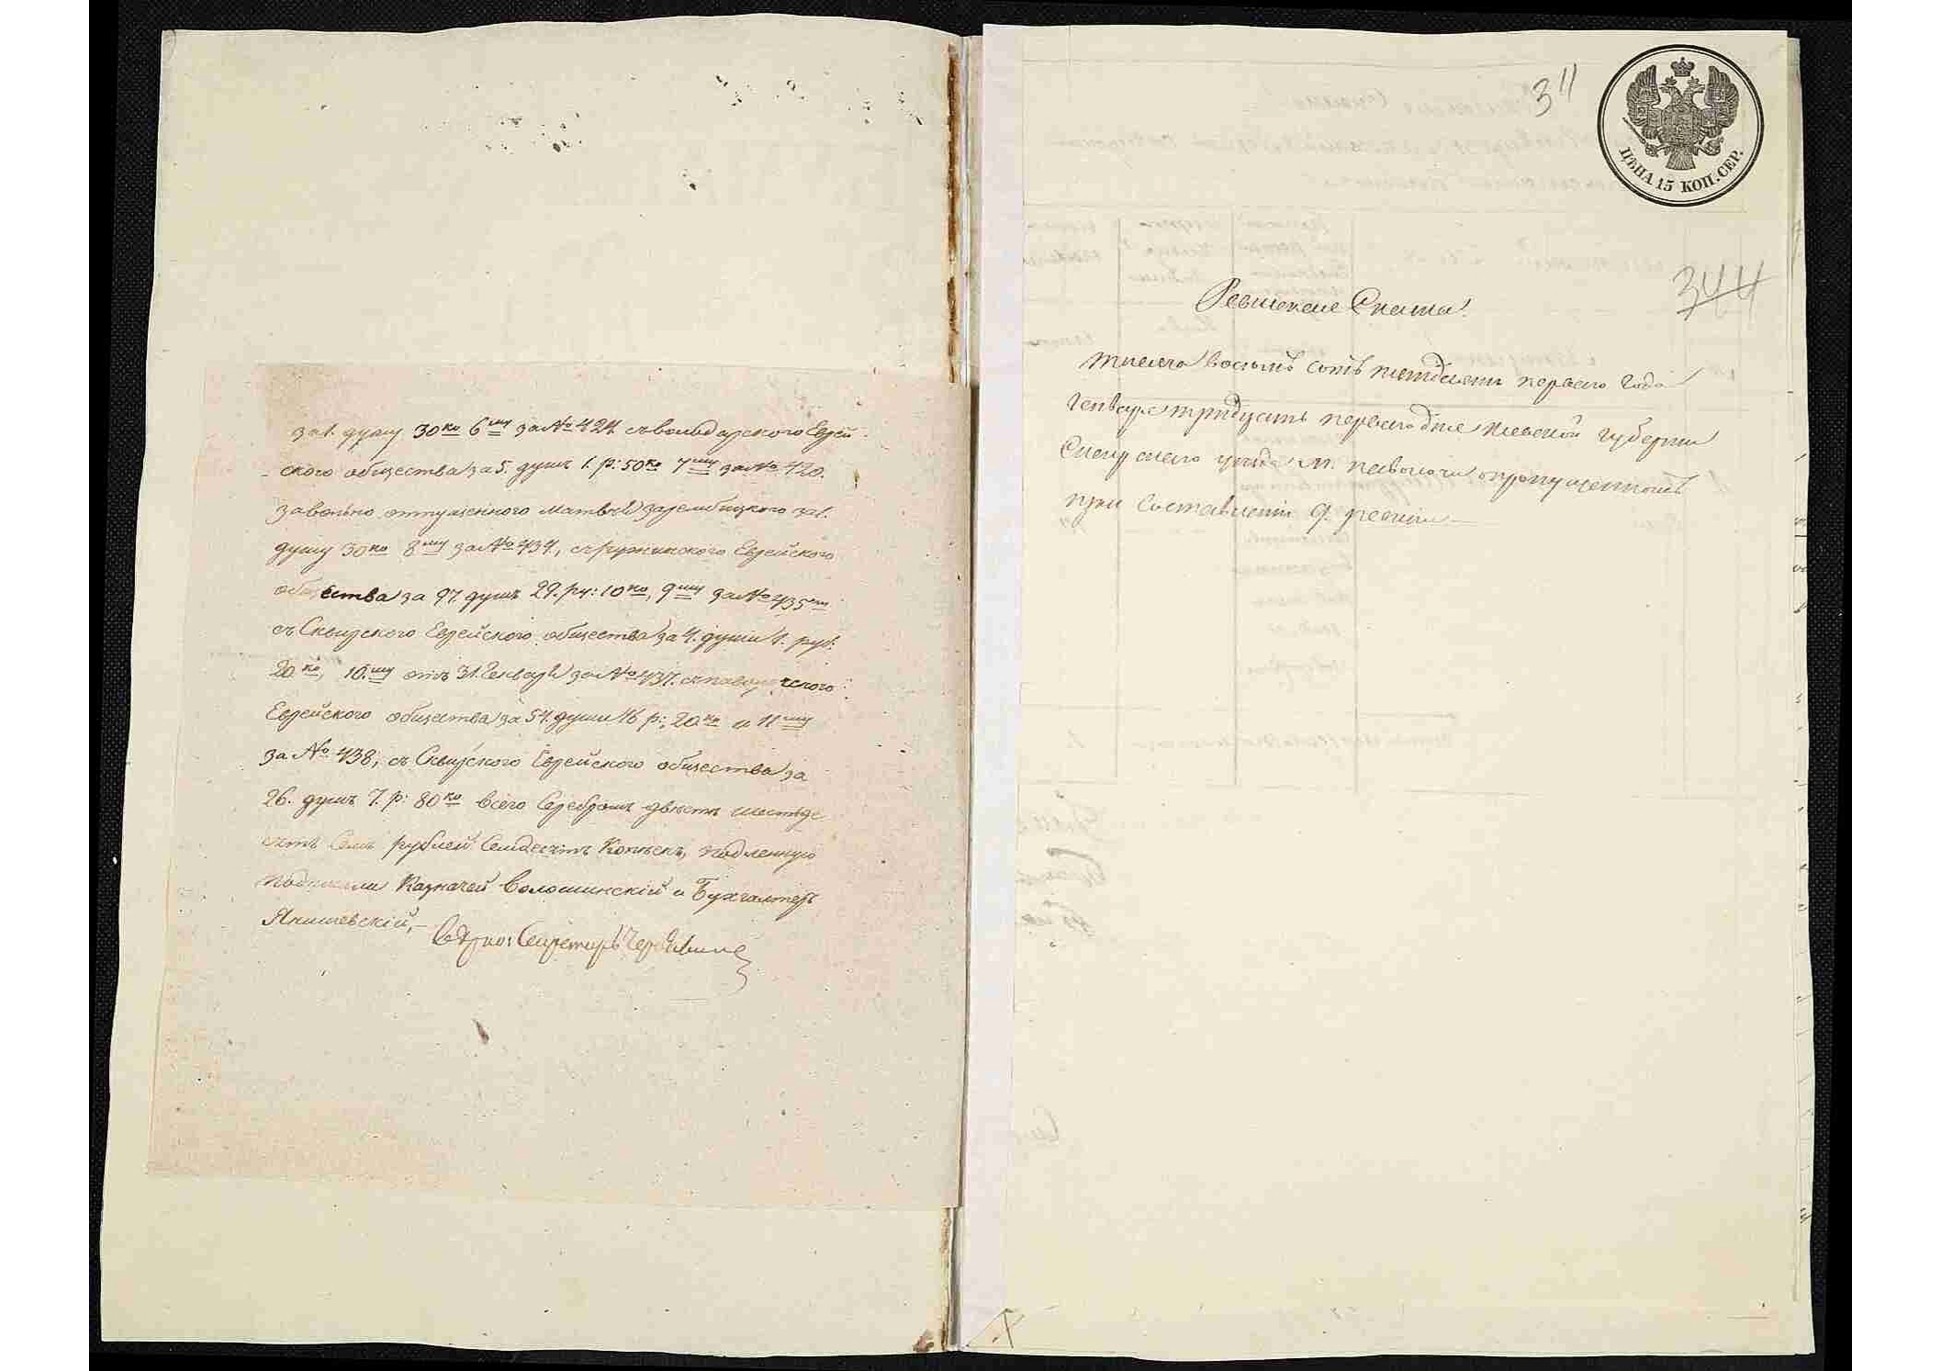 за 1. душу 30 ко 6 ши за № 424 съ володарского Еврей-
ского общества за 5. душъ 1. р: 50 ко 7 ши за № 420.
за вольно отпущенного Матвея Зарембицкого за 1.
душу 30 ко 8 ши за № 434, съ ружинского Еврейского
общества за 97 душъ 29. ру: 10 ко, 9 ши за № 435 ши
съ Сквирского Еврейского общества за 4. души 1. руб.
20 ко, 10 ши отъ 31. Генваря за № 437. съ паволочского
Еврейского общества за 54. души 16 р: 20 ко и 11 ши
за № 438, съ Сквирского Еврейского общества за
26. душъ 7. р: 80 ко всего Серебромъ двѣсти шестьде
сятъ Семь рублей Семдесятъ Копѣекъ, подленную
подписали Казначей Волошинскій и Бухгалтеръ
Янишевскій,
Вѣрно: Секретарь
3 11
ЦѢНА 15 КОП. СЕР.
344
Ревизская Сказка!
тысяча восемь сотъ пятдесять первого года
генваря тридцать первого дня Киевской губернии
Сквирского уезда м. паволочи о пропущенномъ
при составлении 9. ревизии